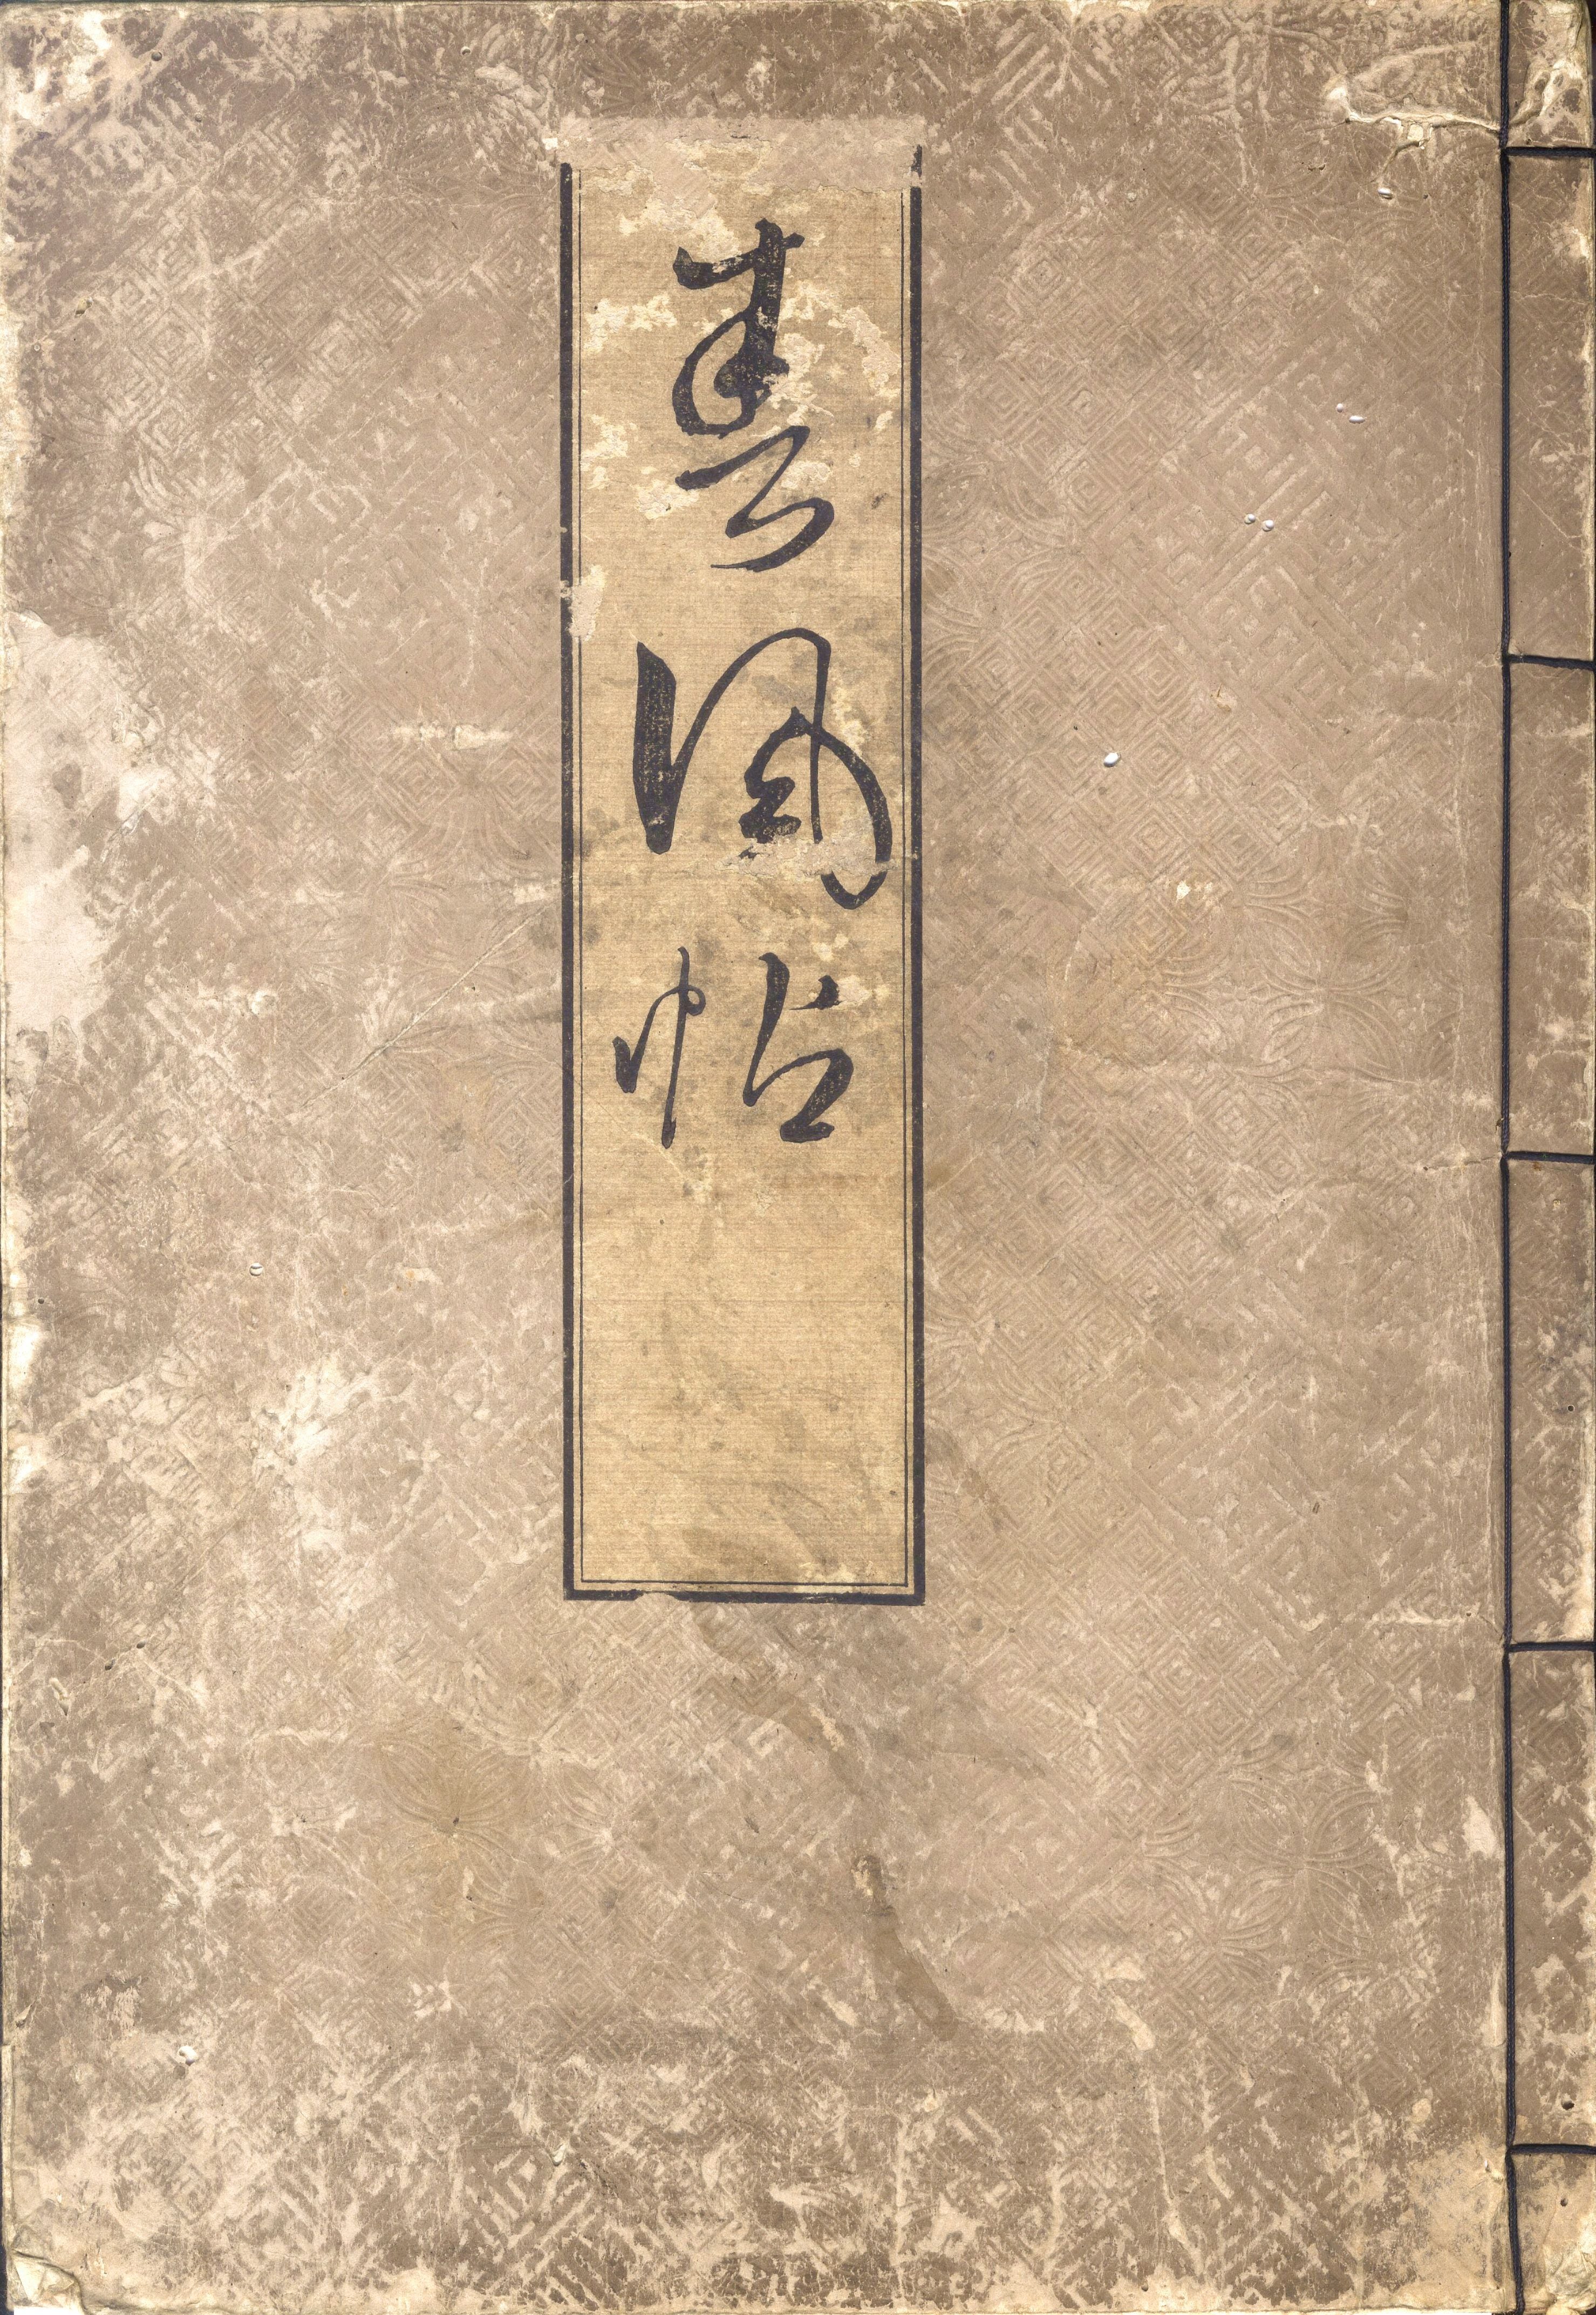 春風帖